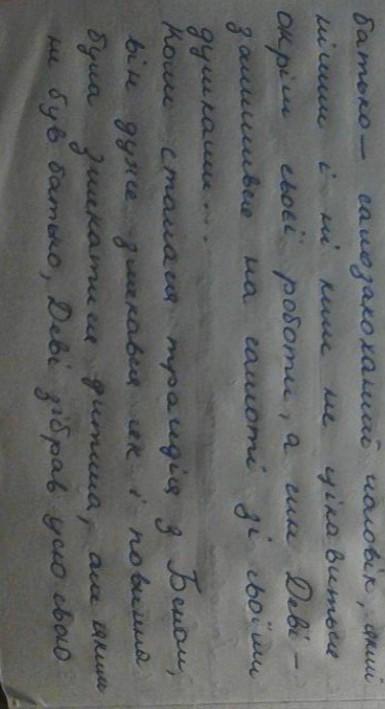 батько – самозакоханий чоловік, який
нічим і ні ким не цікавиться
окрім своєї роботи, а син Деві –
залишився на самоті зі своїми
думками...
Коли сталася трагедія з Беном,
він дуже злякався як і повинна
була злякатися дитина, але яким
не був батько, Деві зібрав усю свою